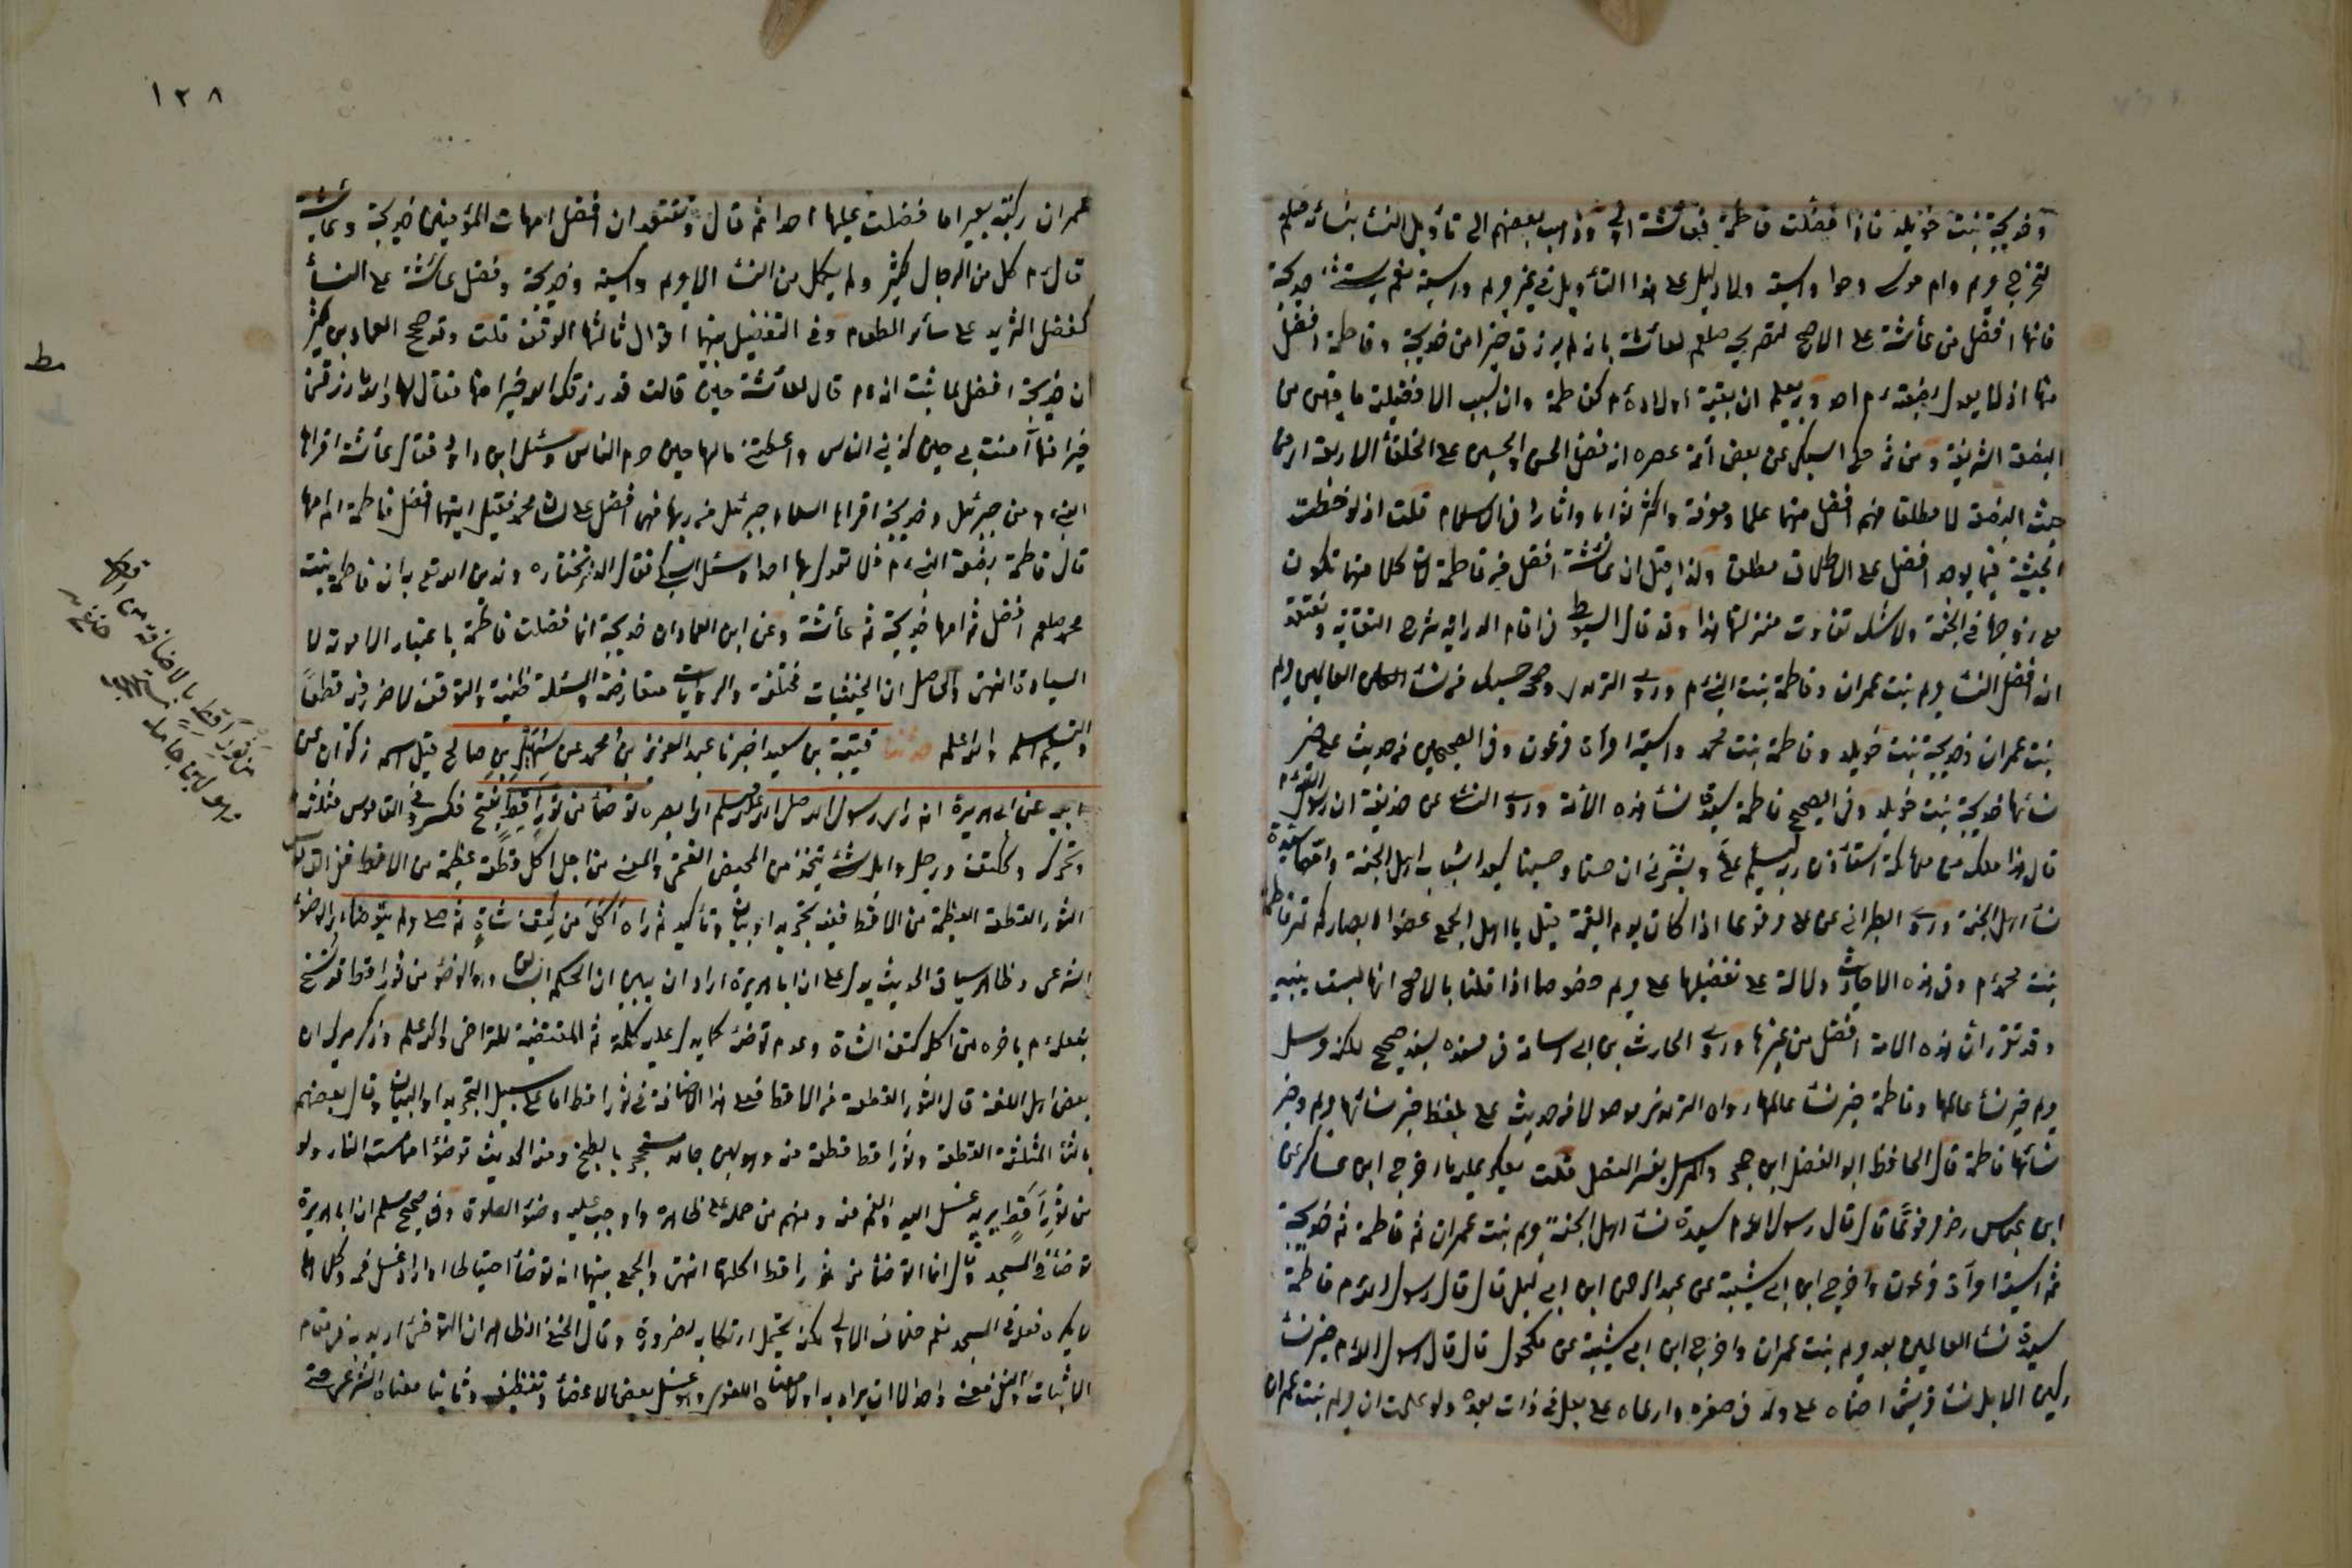 وخديجة بنت خويلد فاذا فضلت فاطمة فعائشة اولى وذهب بعضهم الى تأويل النساء بنسائه صلعم
لتخرج مريم وام موسى وحوا واسية ولا دليل على هذا التأويل في غير مريم واسية نعم يستثنى خديجة
فانها افضل من عائشة على الاصح لتصريحه صلعم لعائشة بانه لم يرزق خيرا من خديجة وفاطمة افضل
منها اذ لا يعدل بضعته م احد وبه يعلم ان بقية اولاده م كفاطمة وان سبب الافضلية ما فيهن من
البضعة الشريفة ومن ثم حكى السبكي عن بعض أئمة عصره انه فضل الحسن والحسين على الخلفاء الاربعة اي من
حيث البضعة لا مطلقا فهم افضل منهما علما ومعرفة واكثر ثوابا واثارا في الاسلام قلت اذ لوحظت
الحيثية فما يوجد افضل على الاطلاق مطلقا ولذا قيل ان عائشة افضل من فاطمة لان كلا منهما تكون
مع زوجها في الجنة ولا شك تفاوت منزلتهما هذا وقد قال السيوطي في اتمام الدراية شرح النقاية ونعتقد
ان افضل النساء مريم بنت عمران وفاطمة بنت النبي م وروى الترمذي وصححه حسبك من نساء العالمين مريم
بنت عمران وخديجة بنت خويلد وفاطمة بنت محمد واسية امرأة فرعون وفي الصحيحين من حديث علي خير
نسائها خديجة بنت خويلد وفي الصحيح فاطمة سيدة نساء هذه الامة وروى النسائي عن حذيفة ان رسول الله م
قال هذا ملك من ملائكة استأذن ربه ليسلم علي وبشرني ان حسنا وحسينا سيدا شباب اهل الجنة وامهما سيدة
نساء اهل الجنة وروى الطبراني عن علي مرفوعا اذا كان يوم القيمة قيل يا اهل الجمع غضوا ابصاركم حتى تمر فاطمة
بنت محمد م وفي هذه الاحاديث دلالة على تفضيلها على مريم خصوصا اذا قلنا بالاصح انها ليست بنبية
وقد تقرر ان هذه الامة افضل من غيرها وروى الحارث بن ابي اسامة في مسنده بسند صحيح لكنه مرسل
مريم خير نساء عالمها وفاطمة خير نساء عالمها رواه الترمذي موصولا من حديث علي بلفظ خير نسائها مريم وخير
نسائها فاطمة قال الحافظ ابو الفضل ابن حجر والمرسل يفسر المتصل قلت يعكر عليه ما اخرجه ابن عساكر عن
ابن عباس رض مرفوعا قال قال رسول الله م سيدة نساء اهل الجنة مريم بنت عمران ثم فاطمة ثم خديجة
ثم اسية امرأة فرعون واخرج ابن ابي شيبة عن عبد الرحمن ابن ابي ليلى قال قال رسول الله م فاطمة
سيدة نساء العالمين بعد مريم بنت عمران واخرج ابن ابي شيبة عن مكحول قال قال رسول الله م خير نساء
ركبن الابل نساء قريش احناه على ولد في صغره وارعاه على بعل في ذات يده ولو علمت ان مريم بنت عمران
١٣٨
عمران ركبت بعيرا ما فضلت عليها احدا ثم قال ونعتقد ان افضل امهات المؤمنين خديجة وعائشة
قال م كمل من الرجال كثير ولم يكمل من النساء الا مريم واسية وخديجة وفضل عائشة على النساء
كفضل الثريد على سائر الطعام وفي التفضيل بينهما اقوال ثالثها الوقف قلت وقد صحح العماد بن كثير
ان خديجة افضل لما ثبت انه م قال لعائشة حين قالت قد رزقك الله خيرا منها فقال لها لا والله ما رزقني
خيرا منها آمنت بي حين كذبني الناس واعطتني مالها حين حرمني الناس وسئل ابن داود فقال عائشة اقرأها
النبي م من جبرئيل وخديجة اقرأها السلام جبرئيل من ربها فهي افضل على لسان محمد فقيل ايتهما افضل فاطمة ام امها
قال فاطمة بضعة النبي م فلا نعدل بها احدا وسئل السبكي فقال الذي نختاره وندين الله تعالى به ان فاطمة بنت
محمد صلعم افضل ثم امها خديجة ثم عائشة وعن ابن العماد ان خديجة انما فضلت فاطمة باعتبار الامومة لا
السيادة انتهى والحاصل ان الحيثيات مختلفة والروايات متعارضة والمسئلة ظنية والتوقف لا ضرر فيه قطعا
والتسليم اسلم والله اعلم حدثنا قتيبة بن سعيد اخبرنا عبد العزيز بن محمد عن سهيل بن ابي صالح قيل اسمه ذكوان عن
ابيه عن ابي هريرة انه رأى رسول الله صلى الله عليه وسلم توضأ من ثور اقط بفتح فكسر وفي القاموس مثلثة
وتحرك وككتف ورجل وابل شئ يتخذ من المخيض الغنمي والمعنى من اجل اكل قطعة عظيمة من الاقط ففي القاموس
الثور القطعة العظيمة من الاقط ففيه تجريد او بيان وتأكيد ثم رآه اكل من كتف شاة ثم صلى ولم يتوضأ اي الوضوء
الشرعي وظاهر سياق الحديث يدل على ان ابا هريرة اراد ان يبين ان الحكم السابق وهو الوضوء من ثور اقط قد نسخ
بفعله م باخره من اكل كتف الشاة وعدم توضئه كما يدل عليه كلمة ثم المقتضية للتراخي والله اعلم وذكر ميرك ان
بعض اهل اللغة قال الثور القطعة من الاقط فعلى هذا الاضافة في ثور اقط اما على سبيل التجريد او البيان وقال بعضهم
بالثاء المثلثة القطعة وثور اقط قطعة منه وهو لبن جامد مستحجر بالطبخ ومنه الحديث توضؤا مما مسته النار ولو
من ثور اقط يريد غسل اليد والفم منه ومنهم من حمله على ظاهره واوجب عليه وضوء الصلوة وفي صحيح مسلم ان ابا هريرة
توضأ في المسجد وقال انما اتوضأ من ثور اقط اكلتها انتهى والجمع بينهما انه توضأ احتياطا او اراد غسل فمه وكلاهما
لا يكره فعله في المسجد نعم خلاف الاولى لكن يحتمل ارتكابه لضرورة وقال الحنفي الظاهر ان التوضئ اريد به في مقام
الاثبات والنفي معنى واحد الا ان يراد به اولا معناه اللغوي وهو غسل بعض الاعضاء وتنظيفه وثانيا معناه الشرعي حتى
مط
من ثور اقط بالاضافة